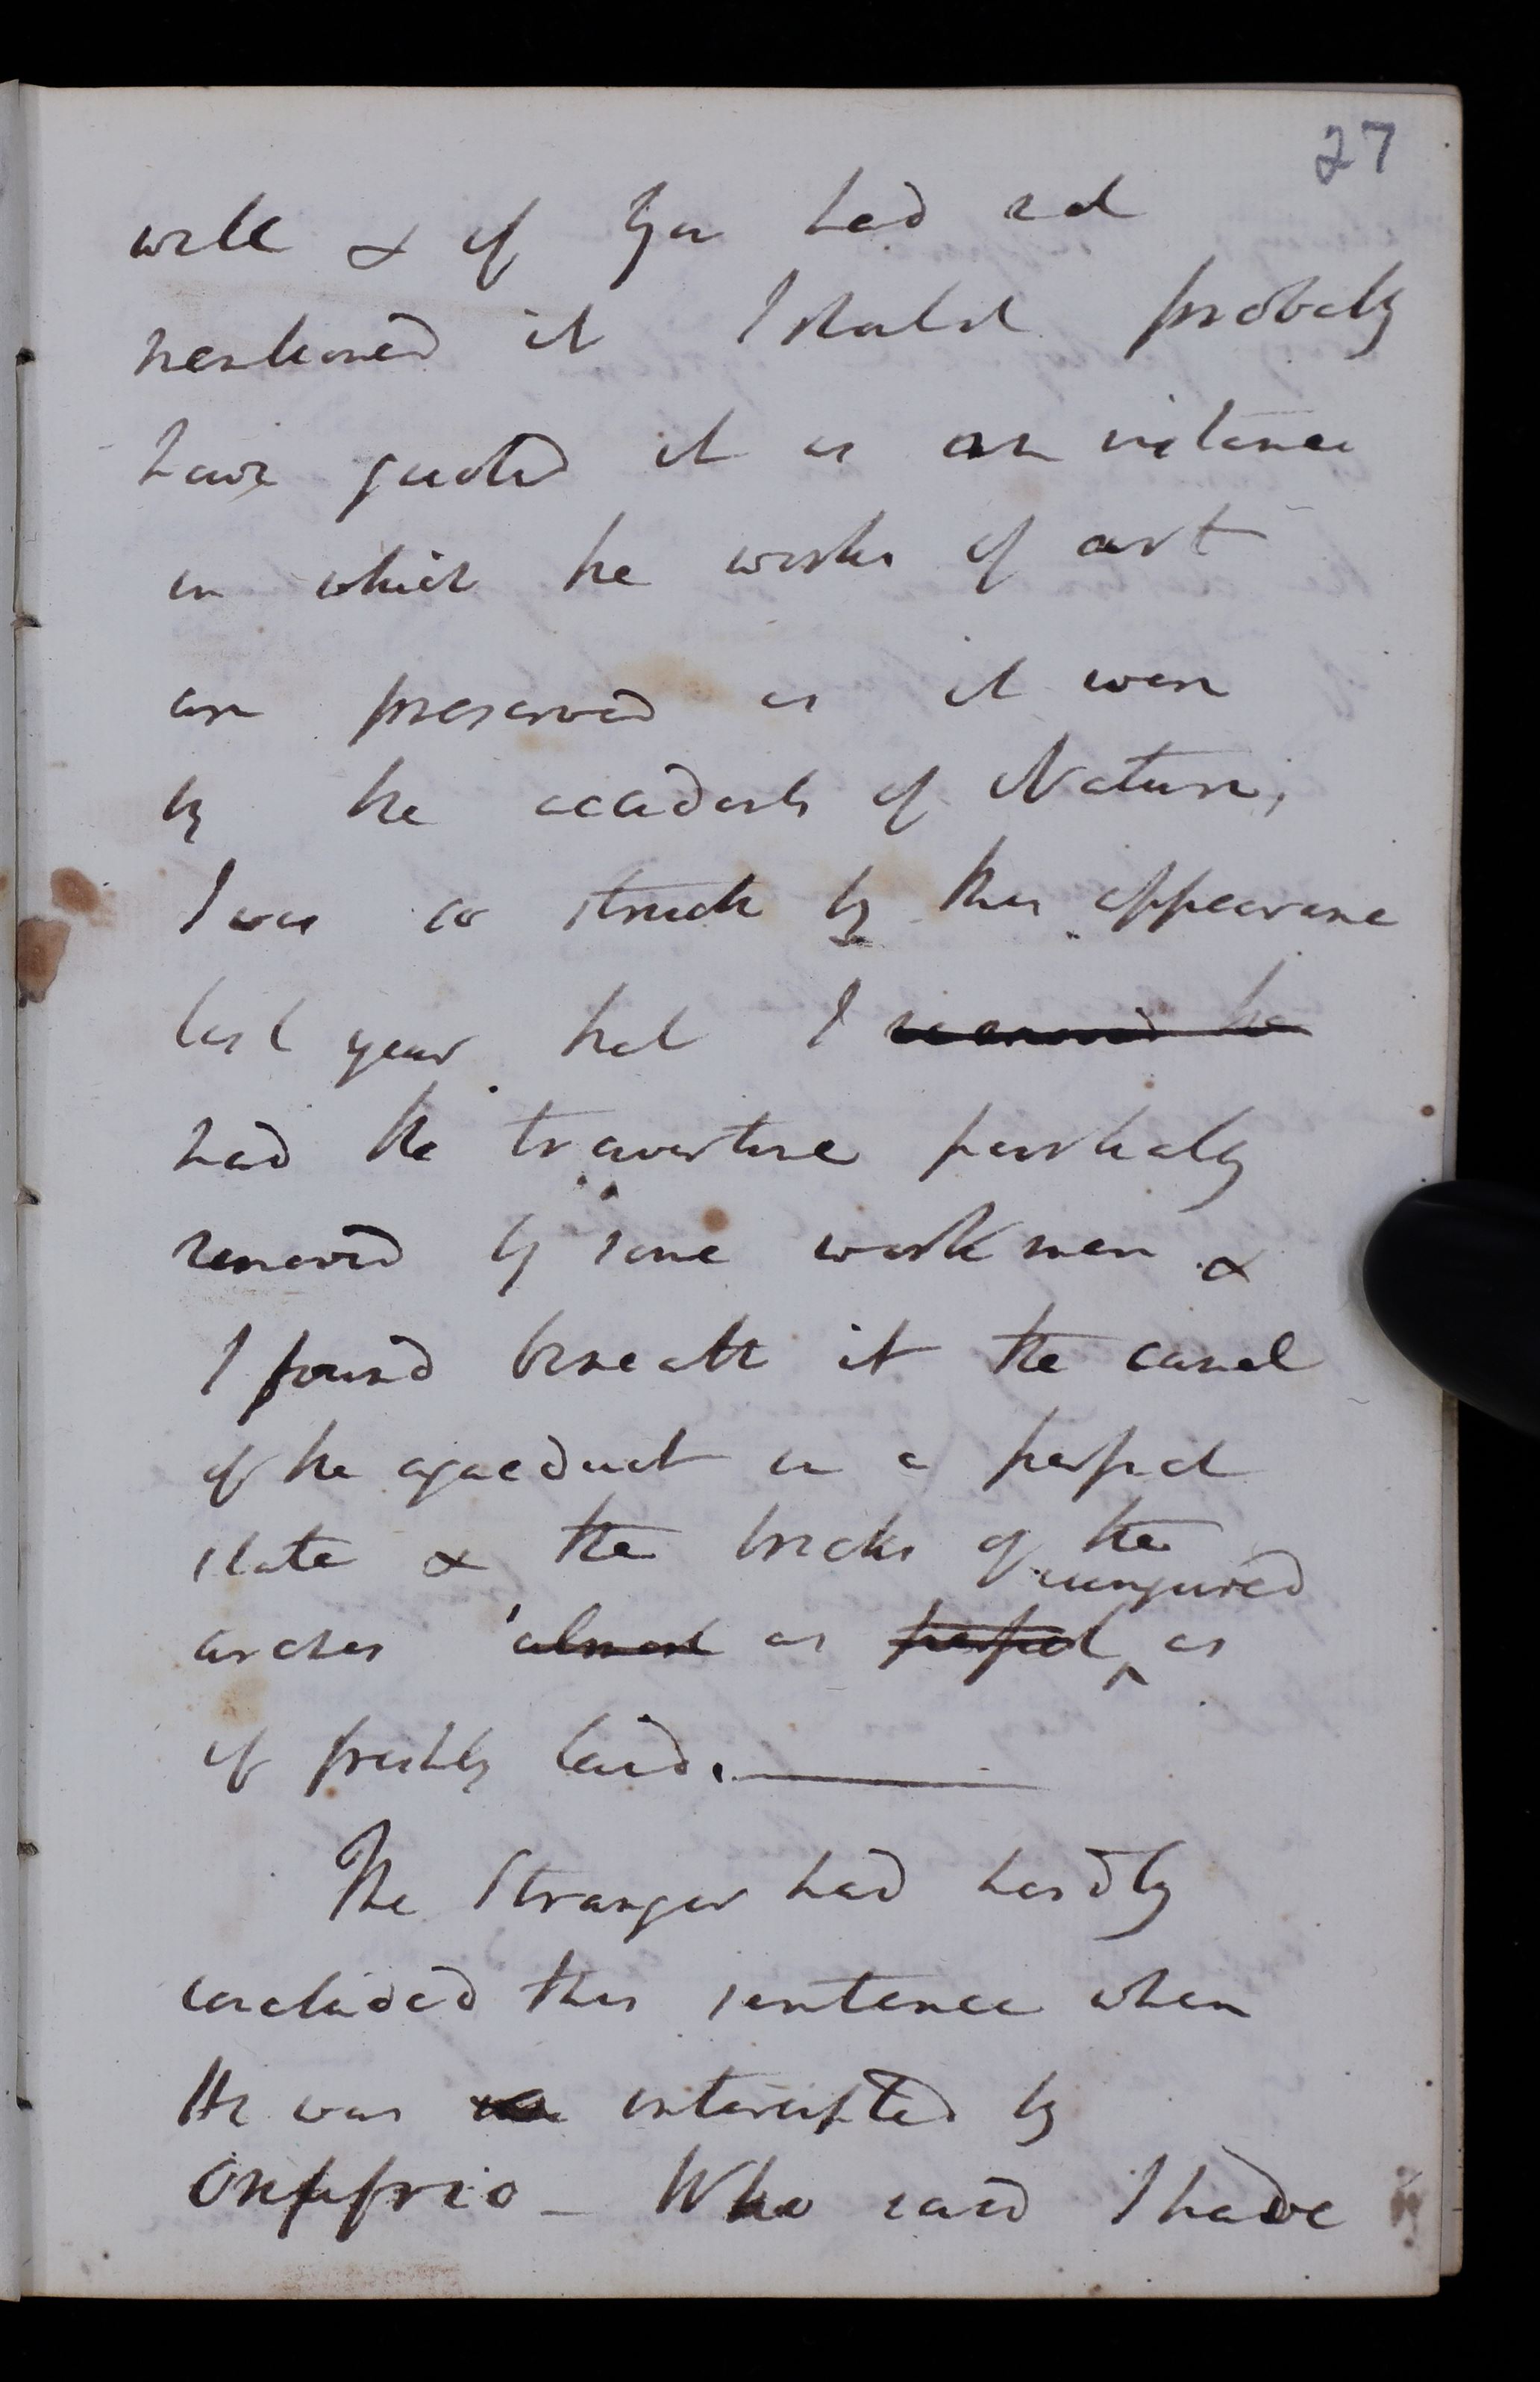 27
well & if you had not
mentioned it I should probably
have quoted it as an instance
in which the works of art
are preserved as it were
by the accidents of Nature;
I was so struck by this appearance
last year that I removed the
had the travertine partially
removed by some workmen &
I found beneath it the canal
of the aqaeduct in a perfect
state & the bricks of the
uninjured
arches almost as perfect ^ as
if freshly laid.
The Stranger had hardly
concluded this sentence when
He was interrupted by
Onuphrio - Who said I have